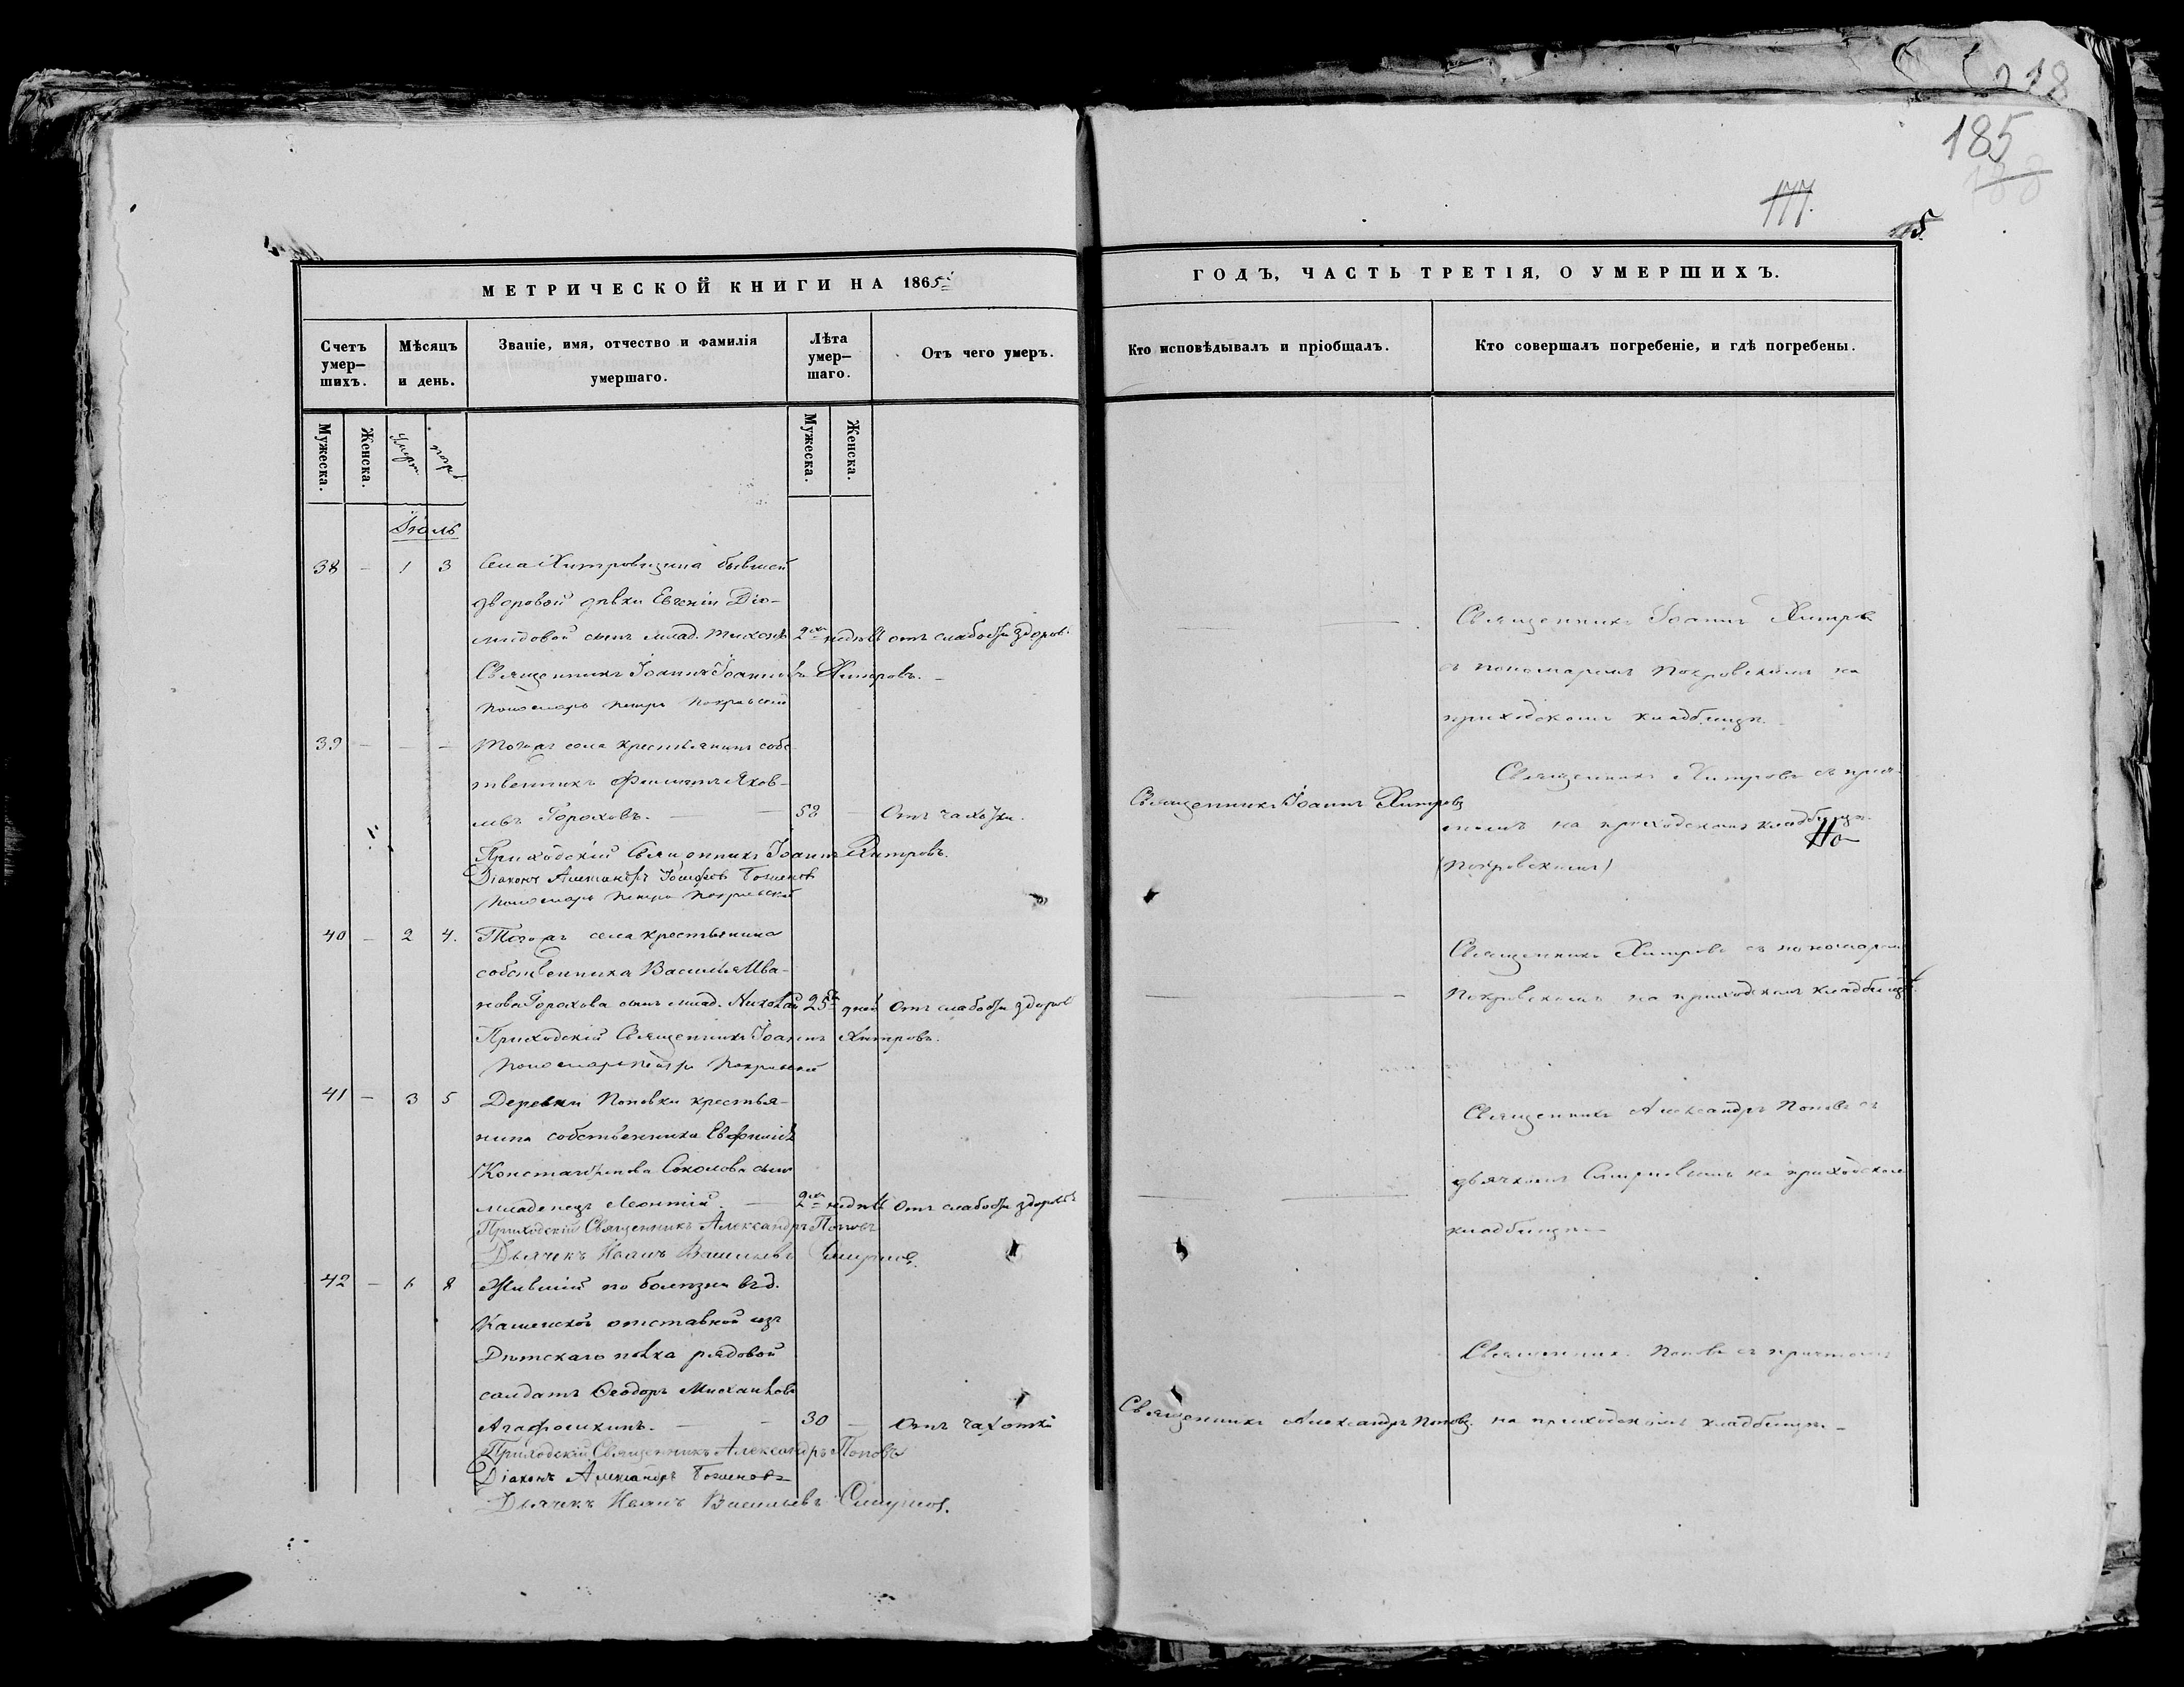 218
185
177
МЕТРИЧЕСКОЙ КНИГИ НА 1865й
ГОДЪ, ЧАСТЬ ТРЕТІЯ, О УМЕРШИХЪ.
Счетъ умер-шихъ.
Мѣсяцъ и день.
Званіе, имя, отчество и фамилія умершаго.
Лѣта умер-шаго.
Отъ чего умеръ.
Кто исповѣдывалъ и пріобщалъ.
Кто совершалъ погребеніе, и гдѣ погребены.
Мужеска.
Женска.
Умерт.
погр.
Мужеска.
Женска.
Іюль
38 - 1 3 Села Хитровщина бывшей
дворовой дѣвки Евгеніи Діо-
мидовой сынъ млад. Тихонъ 2хъ недѣль отъ слабости здоров.
Священникъ Іоаннъ Іоанновъ Хитровъ.
Пономарь Петръ Покровскій
Священникъ Іоаннъ Хитровъ
съ пономаремъ Покровскимъ на
приходскомъ кладбищѣ.
39 - - - Тогожъ села крестьянинъ соб-
ственникъ Филиппъ Яков-
левъ Гороховъ. - 58 - Отъ чахотки.
Приходскій Священникъ Іоаннъ Хитровъ.
Діаконъ Александръ
Пономарь Петръ Покровскій
Священникъ Іоаннъ Хитровъ
Священникъ Хитровъ съ прич-
томъ на приходскомъ кладбищѣ.
(Покровскомъ)
40 - 2 4. Тогожъ села крестьянина
собственника Василья Ива-
нова Горохова сынъ млад. Николай 25ть дней Отъ слабости здоров
Приходскій Священникъ Іоаннъ Хитровъ.
Пономарь Петръ Покровскій
Священникъ Хитровъ съ пономаремъ
Покровскимъ на приходскомъ кладбищѣ.
41 - 3 5 Деревни Поповки крестья-
нина собственника
Константинова Соколова сынъ
младенецъ Леонтій. - 2хъ недѣль Отъ слабости здоровья
Приходскій Священникъ Александръ Поповъ
Дьячекъ Иванъ Васильевъ Смирновъ.
Священникъ Александръ Поповъ съ
дьячкомъ Смирновымъ на приходскомъ
кладбищѣ
42 - 6 8 Жившій по болезни въ д.
Каменской отставной изъ
полка рядовой
солдатъ Ѳеодоръ Михайловъ
Агафошкинъ. - 30 - Отъ чахотки
Приходскій Священникъ Александръ Поповъ
Діаконъ Александръ
Дьячекъ Иванъ Васильевъ Смирновъ.
Священникъ Александръ Поповъ.
Священникъ Поповъ съ причтомъ
на приходскомъ кладбищѣ.